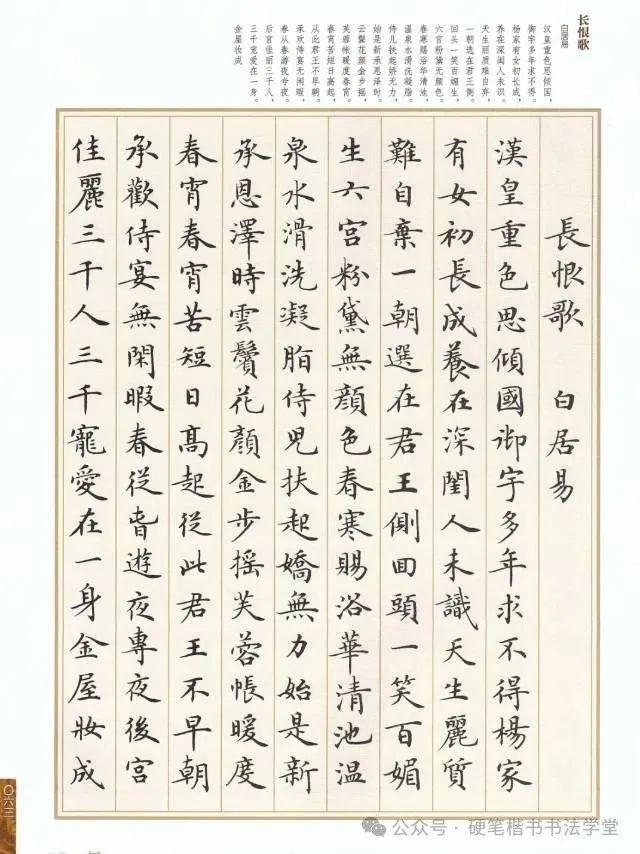 长恨歌
白居易
汉皇重色思倾国,
御宇多年求不得。
杨家有女初长成,
养在深闺人未识。
天生丽质难自弃,
一朝选在君王侧。
回头一笑百媚生,
六宫粉黛无颜色。
春寒赐浴华清池,
温泉水滑洗凝脂。
侍儿扶起娇无力,
始是新承恩泽时。
云鬓花颜金步摇,
芙蓉帐暖度春宵。
春宵苦短日高起,
从此君王不早朝。
承欢侍宴无闲暇,
春从春游夜专夜。
后宫佳丽三千人,
三千宠爱在一身。
金屋妆成
長恨歌 白居易
漢皇重色思傾國御宇多年求不得楊家
有女初長成養在深閨人未識天生麗質
難自棄一朝選在君王側回頭一笑百媚
生六宮粉黛無顏色春寒賜浴華清池溫
泉水滑洗凝脂侍兒扶起嬌無力始是新
承恩澤時雲鬢花顏金步搖芙蓉帳暖度
春宵春宵苦短日高起從此君王不早朝
承歡侍宴無閑暇春從春遊夜專夜後宮
佳麗三千人三千寵愛在一身金屋妝成
〇六三
公众号·硬笔楷书书法学堂